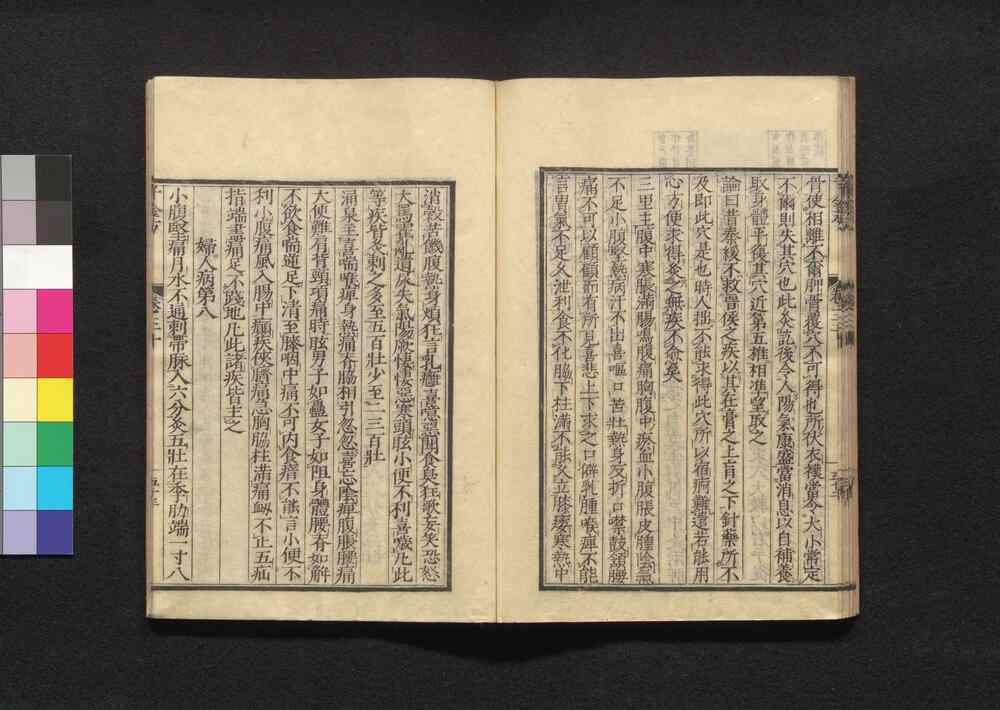 骨使相離不爾胛骨覆穴不可得也所伏衣襆當令大小常定
不爾則失其穴也此灸訖後令人陽氣康盛當消息以自補養
取身體平復其穴近第五椎相準望取之
論曰昔秦緩不救晉侯之疾以其在膏之上肓之下針藥所不
及即此穴是也時人拙不能求得此穴所以宿痾難遣若能用
心方便求得灸之無疾不愈矣
三里主腹中寒脹滿腸鳴腹痛胸腹中瘀血小腹脹皮腫陰氣
不足小腹堅熱病汗不出喜嘔口苦壯熱身反折口噤鼓頷腰
痛不可以顧顧而有所見喜悲上下求之口僻乳腫喉痺不能
言胃氣不足久泄利食不化脇下柱滿不能久立膝痿寒熱中
消穀苦饑腹熱身煩狂言乳癰喜噫惡聞食臭狂歌妄笑恐怒
大罵霍亂遺尿失氣陽厥悽悽惡寒頭眩小便不利喜噦凡此
等疾皆灸刺之多至五百壯少至二三百壯
涌泉主喜喘喉痺身熱痛脊脇相引忽忽喜忘陰痺腹脹腰痛
大便難肩背頸項痛時眩男子如蠱女子如阻身體腰脊如解
不飲食喘逆足下清至膝咽中痛不可內食瘖不能言小便不
利小腹痛風入腸中癲疾俠臍痛急胸脇柱滿痛衂不止五疝
指端盡痛足不踐地凡此諸疾皆主之
婦人病第八
小腹堅痛月水不通刺帶脉入六分灸五壯在季肋端一寸八
千金方
卷三十
五十三